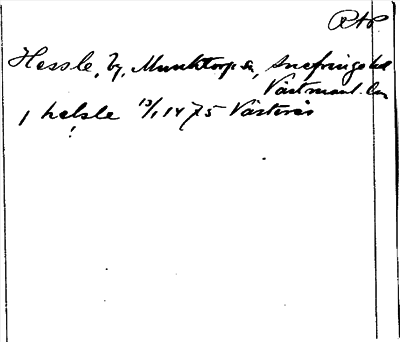 RAP
Hessle, by, Munktorp sn, Snefringe hd
Västmanl. län
i helsle 13/1 1475 Västerås
!